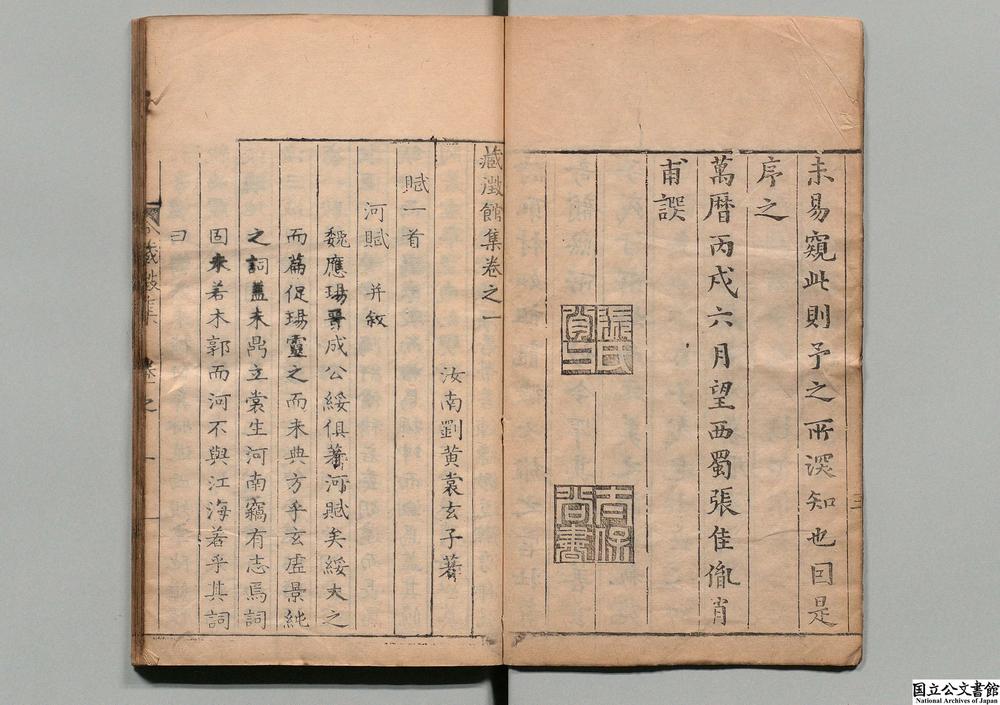 未易窺此則予之所深知也因是
序之
萬曆丙戌六月望西蜀張佳胤肖
甫譔
張氏肖父
宮保尚書
藏澂館集卷之一
汝南劉黃裳玄子著
賦一首
河賦 并敘
魏應瑒晉成公綏俱著河賦矣綏大之
而篇促瑒靈之而未典方乎玄虛景純
之詞蓋未咼立裳生河南竊有志焉詞
固未若木郭而河不與江海若乎其詞
曰
藏澂集 卷之一 一
国立公文書館
National Archives of Japan